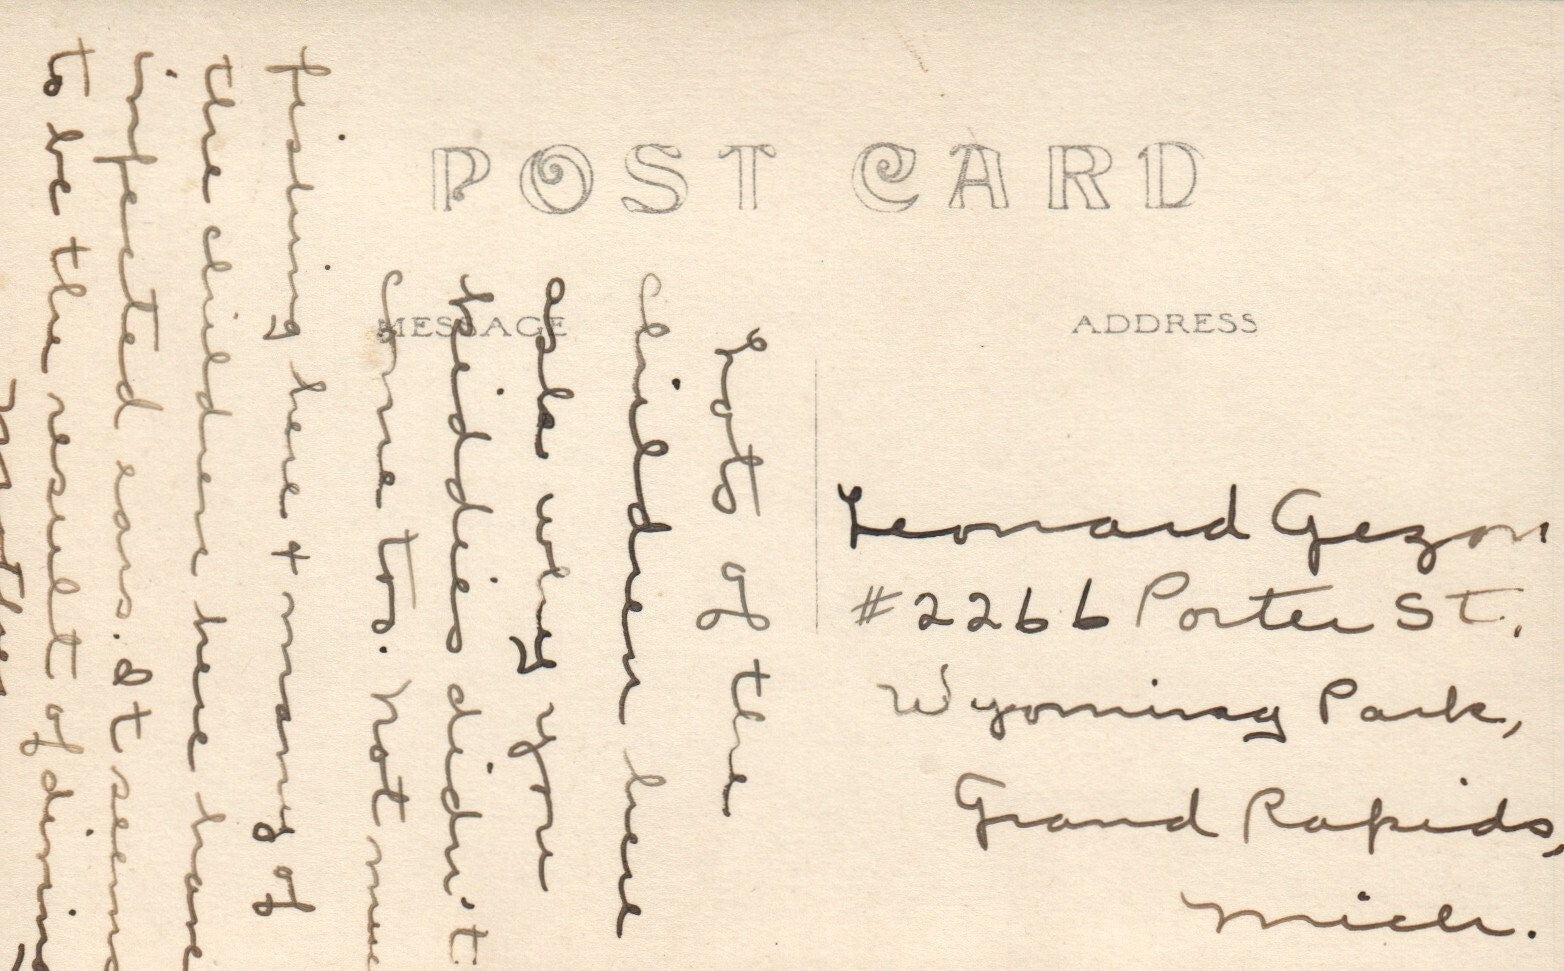 POST CARD
MESSAGE
ADDRESS
Leonard Gezon
#2266 Porter St.,
Wyoming Park,
Grand Rapids,
Mich.
Lots of the
children here
ask why you
kiddies didn't
come to. Not
fishing here + many of
the children here have
infected ears. It
to be the result of